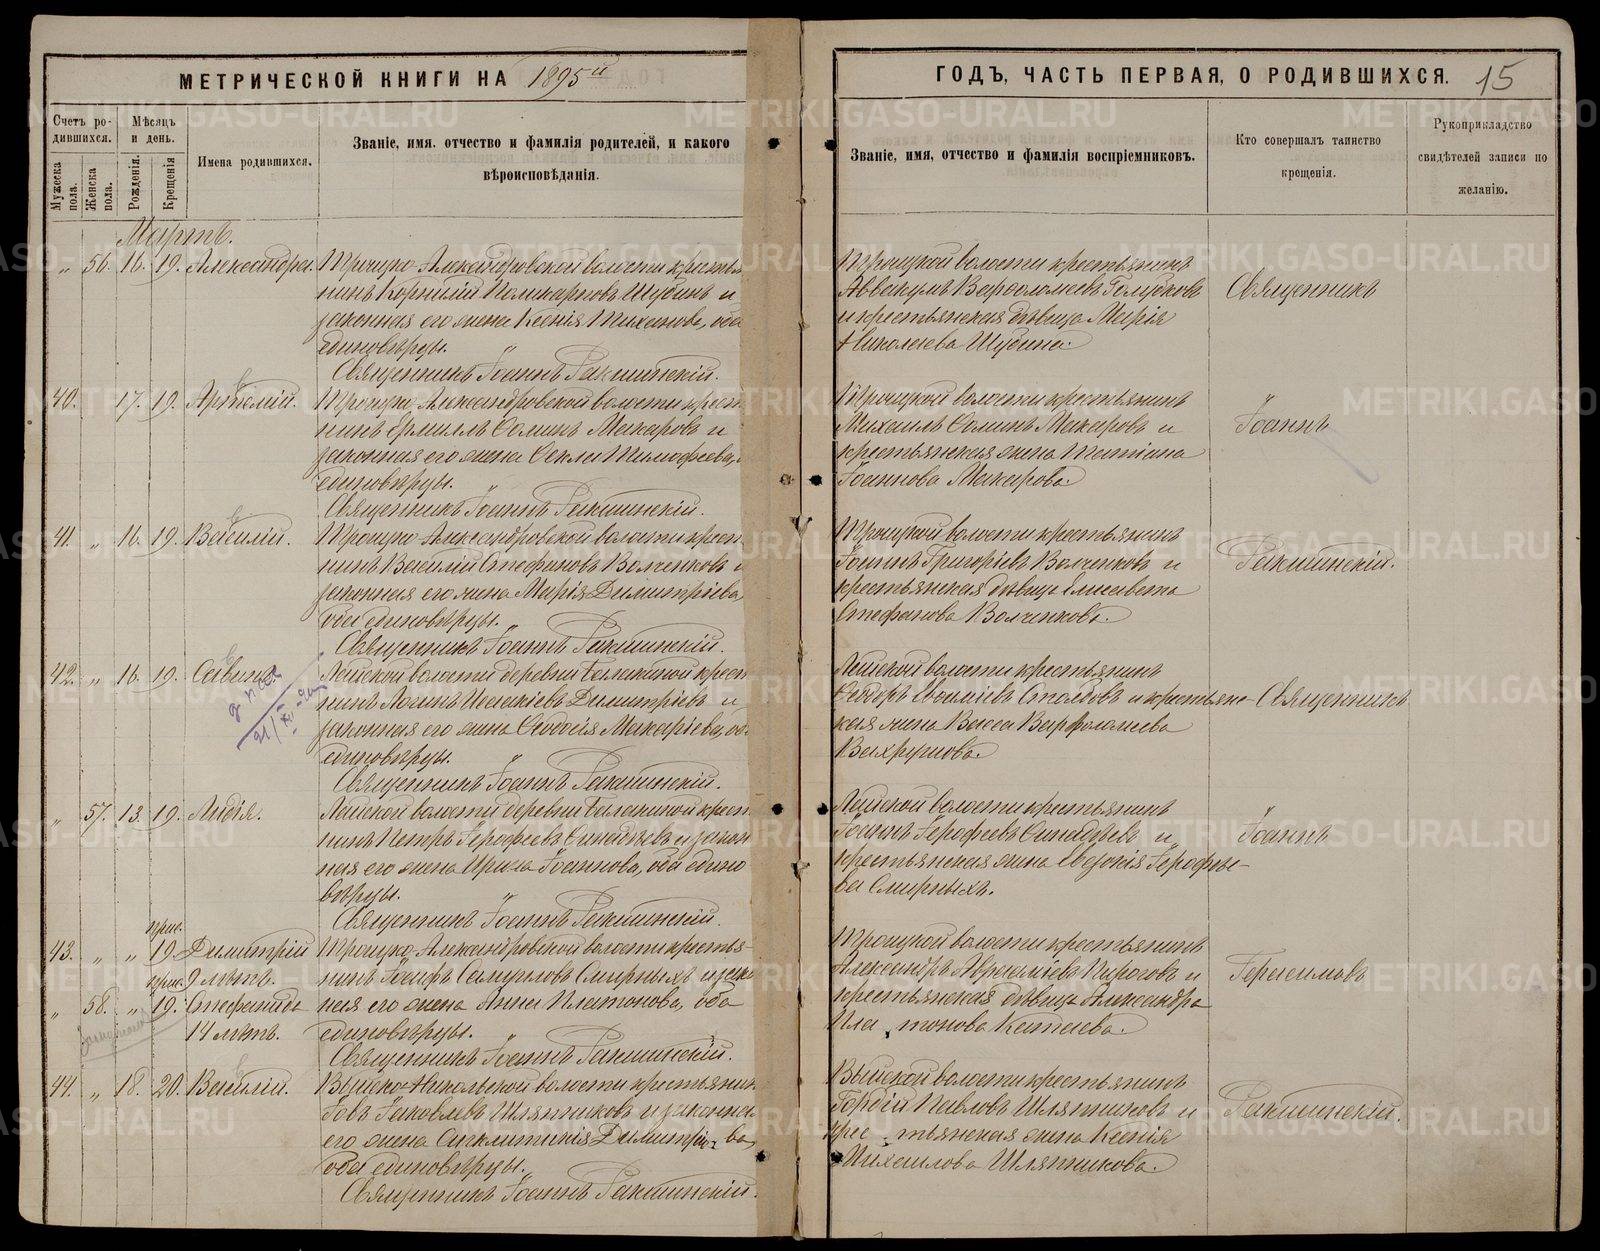 МЕТРИЧЕСКОЙ КНИГИ НА 1895й
ГОДЪ, ЧАСТЬ ПЕРВАЯ, О РОДИВШИХСЯ. 15
Счетъ ро-
дившихся.
Мѣсяцъ
и день.
Мужеска
пола.
Женска
пола.
Рожденія.
Крещенія
Имена родившихся.
Званіе, имя. отчество и фамилія родителей, и какого
вѣроисповѣданія.
Званіе, имя, отчество и фамилія воспріемниковъ.
Кто совершалъ таинство
крещенія.
Рукоприкладство
свидѣтелей записи по
желанію.
Мартъ.
„ 56. 16. 19. Александра. Троицко-Александровской волости крестья
нинъ Корнилій Поликарповъ Шубинъ и
законная его жена Ксенія Тиханова, оба
единовѣрцы.
Священникъ Іоаннъ Ракшинскій.
Троицкой волости крестьянинъ
Аввакумъ Варфоломеевъ Голубковъ
и крестьянская дѣвица Марія
Николаева Шубина.
Священникъ
40. 17. 19. Артемій. Троицко-Александровской волости крест
нинъ Ермилъ Соминъ Макаровъ и
законная его жена Фекла Тимофеева,
единовѣрцы.
Священникъ Іоаннъ Ракшинскій.
Троицкой волости крестьянинъ
Михаилъ Соминъ Макаровъ и
крестьянская жена Татіана
Іоаннова Макарова.
Іоаннъ
41. „ 16. 19. Василій. Троицко-Александровской волости крест
нинъ Василій Стефановъ Волченковъ и
законная его жена Марія Димитріева,
оба единовѣрцы.
Священникъ Іоаннъ Ракшинскій.
Троицкой волости крестьянинъ
Іоаннъ Григоріевъ Волченковъ и
крестьянская дѣвица Елисавета
Стефанова Волченкова.
Ракшинскій.
42. „ 16. 19. Савинъ. Лайской волости деревни Балакиной крест
нинъ Логинъ Исаакіевъ Димитріевъ и
законная его жена Феодосія Макаріева, об
единовѣрцы.
Священникъ Іоаннъ Ракшинскій.
Лайской волости крестьянинъ
Феодоръ и крестьянс-
кая жена Васса Варфоломеева
Вахрушова.
Священникъ
„ 57. 13. 19. Лидія. Лайской волости деревни Балакиной крест
нинъ Петръ Іерофеевъ и закон
ная его жена Ирина Іоаннова, оба едино
вѣрцы.
Священникъ Іоаннъ Ракшинскій.
Лайской волости крестьянинъ
Іоаннъ Іерофеевъ и
крестьянская жена Евдокія Іерофее-
ва Смирныхъ.
Іоаннъ
прис.
43. „ „ 19. Димитрій Троицко-Александровской волости крестья-
прис. 9 лѣтъ. нинъ Іосифъ Самуиловъ Смирныхъ и зако
„ 58. „ 19. Стефанида ная его жена Анна Платонова, оба
14 лѣтъ. единовѣрцы.
Священникъ Іоаннъ Ракшинскій.
Троицкой волости крестьянинъ
Александръ Авраміевъ Пироговъ и
крестьянская дѣвица Александра
Пла тонова Катаева.
Герасимовъ
44. „ 18. 20. Василій. Выйско-Никольской волости крестьянин
Іовъ Іаковлевъ Шляпниковъ и законна
его жена Синклитикія Димитріева,
оба единовѣрцы.
Священникъ Іоаннъ Ракшинскій.
Выйской волости крестьянинъ
Гордій Павловъ Шляпниковъ и
крес тьянская жена Ксенія
Михаилова Шляпникова.
Ракшинскій.
METRIKI.GASO-URAL.RU